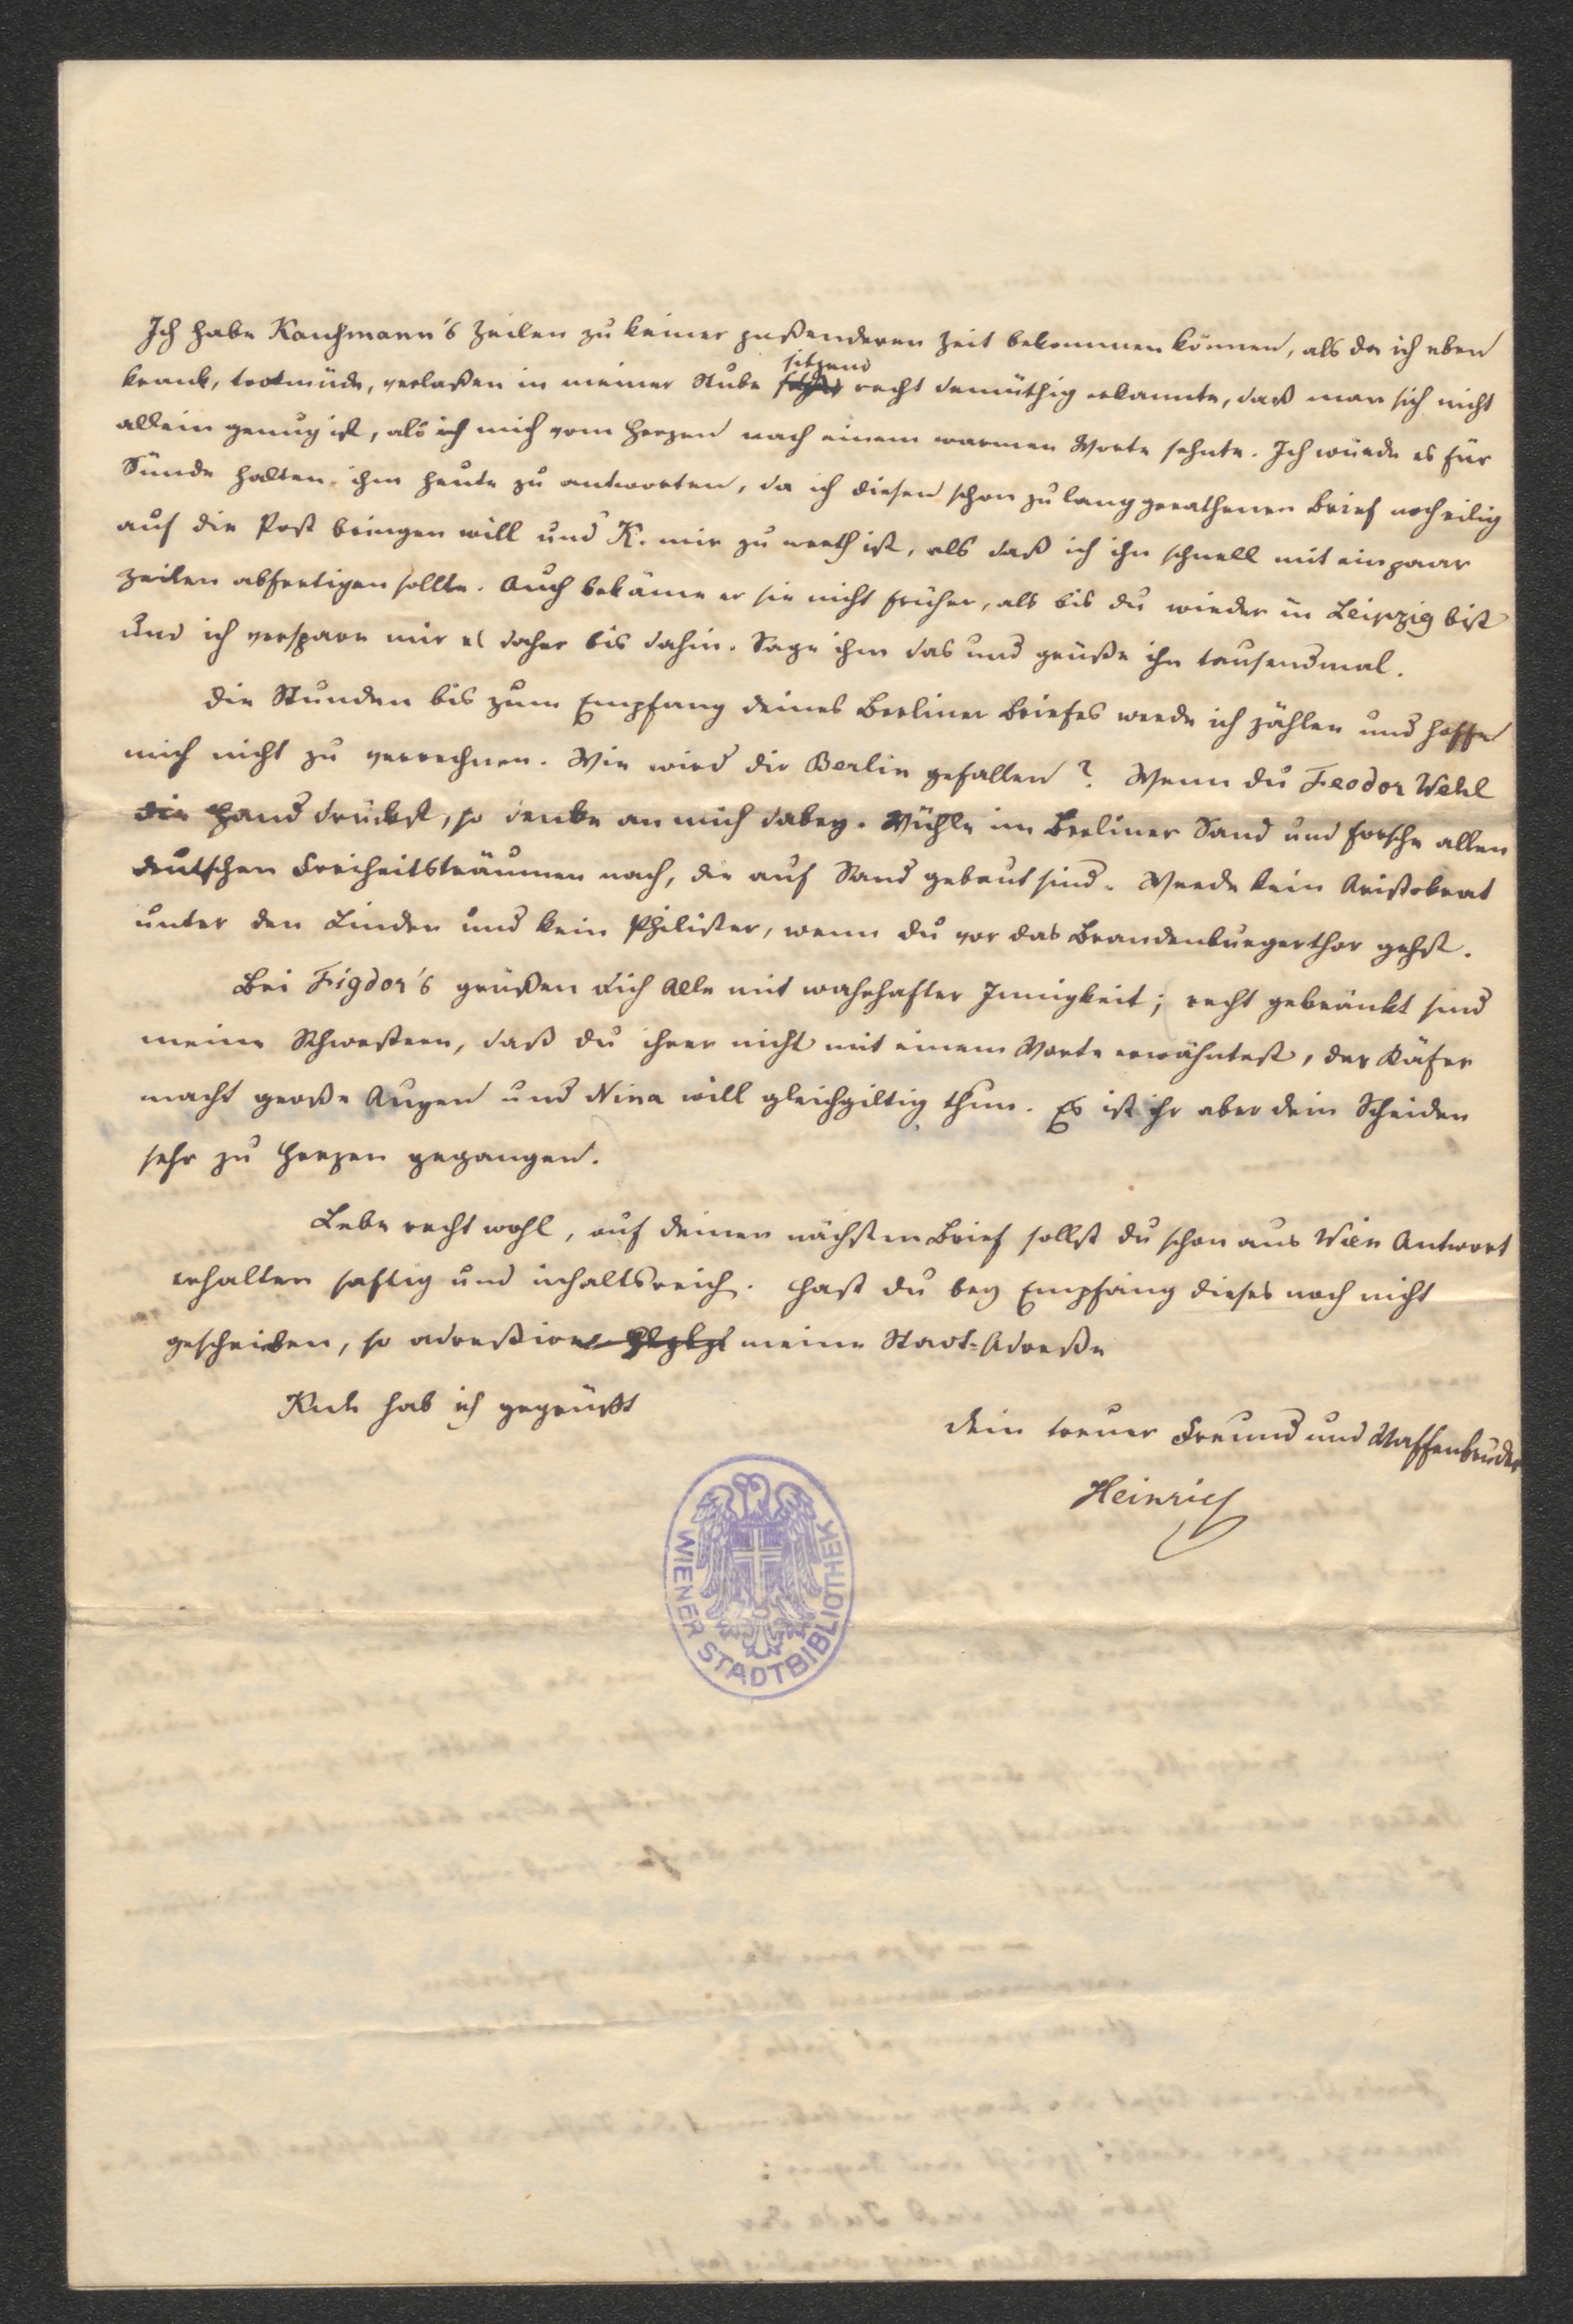 Ich habe Kaufmann's Zeilen zu keiner paßenderen Zeit bekommen können, als da ich eben
krank, todtmüde, verlaßen in meiner Stube sitzend recht demüthig erkannte, daß man sich nicht
allein genug ist, als ich mich vom Herzen nach einem warmen Worte sehnte. Ich würde es für
Sünde halten ihm heute zu antworten, da ich diesen schon zu lang gerathenen Brief noch eilig
auf die Post bringen will und K. mir zu werth ist, als daß ich ihn schnell mit ein paar
Zeilen abfertigen sollte. Auch bekäme er sie nicht früher, als bis du wieder in Leipzig bist
und ich verspare mir es daher bis dahin. Sage ihm das und grüße ihn tausendmal.
Die Stunden bis zum Empfang deines Berliner Briefes werde ich zählen und hoffe
mich nicht zu verrechnen. Wie wird dir Berlin gefallen? Wenn du Feodor Wehl
die Hand drückst, so denke an mich dabey. Wühle im Berliner Sand und forsche allen
deutschen Freiheitsträumen nach, die auf Sand gebaut sind. Werde kein Aristokrat
unter den Linden und kein Philister, wenn du vor das Brandenburgerthor gehst.
Bei Figdor's grüßen dich Alle mit wahrhafter Innigkeit; recht gekränkt sind
meine Schwestern, daß du ihrer nicht mit einem Worte erwähntest, der Käfer
macht große Augen und Nina will gleichgiltig thun. Es ist ihr aber dein Scheiden
sehr zu Herzen gegangen.
Lebe recht wohl, auf deinen nächsten Brief sollst du schon aus Wien Antwort
erhalten saftig und inhaltsreich. Hast du bey Empfang dieses noch nicht
geschrieben, so adreßire meine Stadt-Adreße
hab ich gegrüßt
dein treuer Freund und Waffenbruder
Heinrich
WIENER STADTBIBLIOTHEK